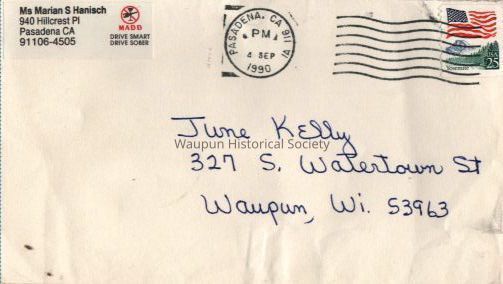 Ms Marian S Hanisch
940 Hillcrest Pl
Pasadena CA
91106-4505
MADD
DRIVE SMART
DRIVE SOBER
PASADENA, CA 911
PM
4 SEP
1990
USA
25
Yosemite
June Kelly
Waupun Historical Society
327 S. Watertown St
Waupun, Wi. 53963